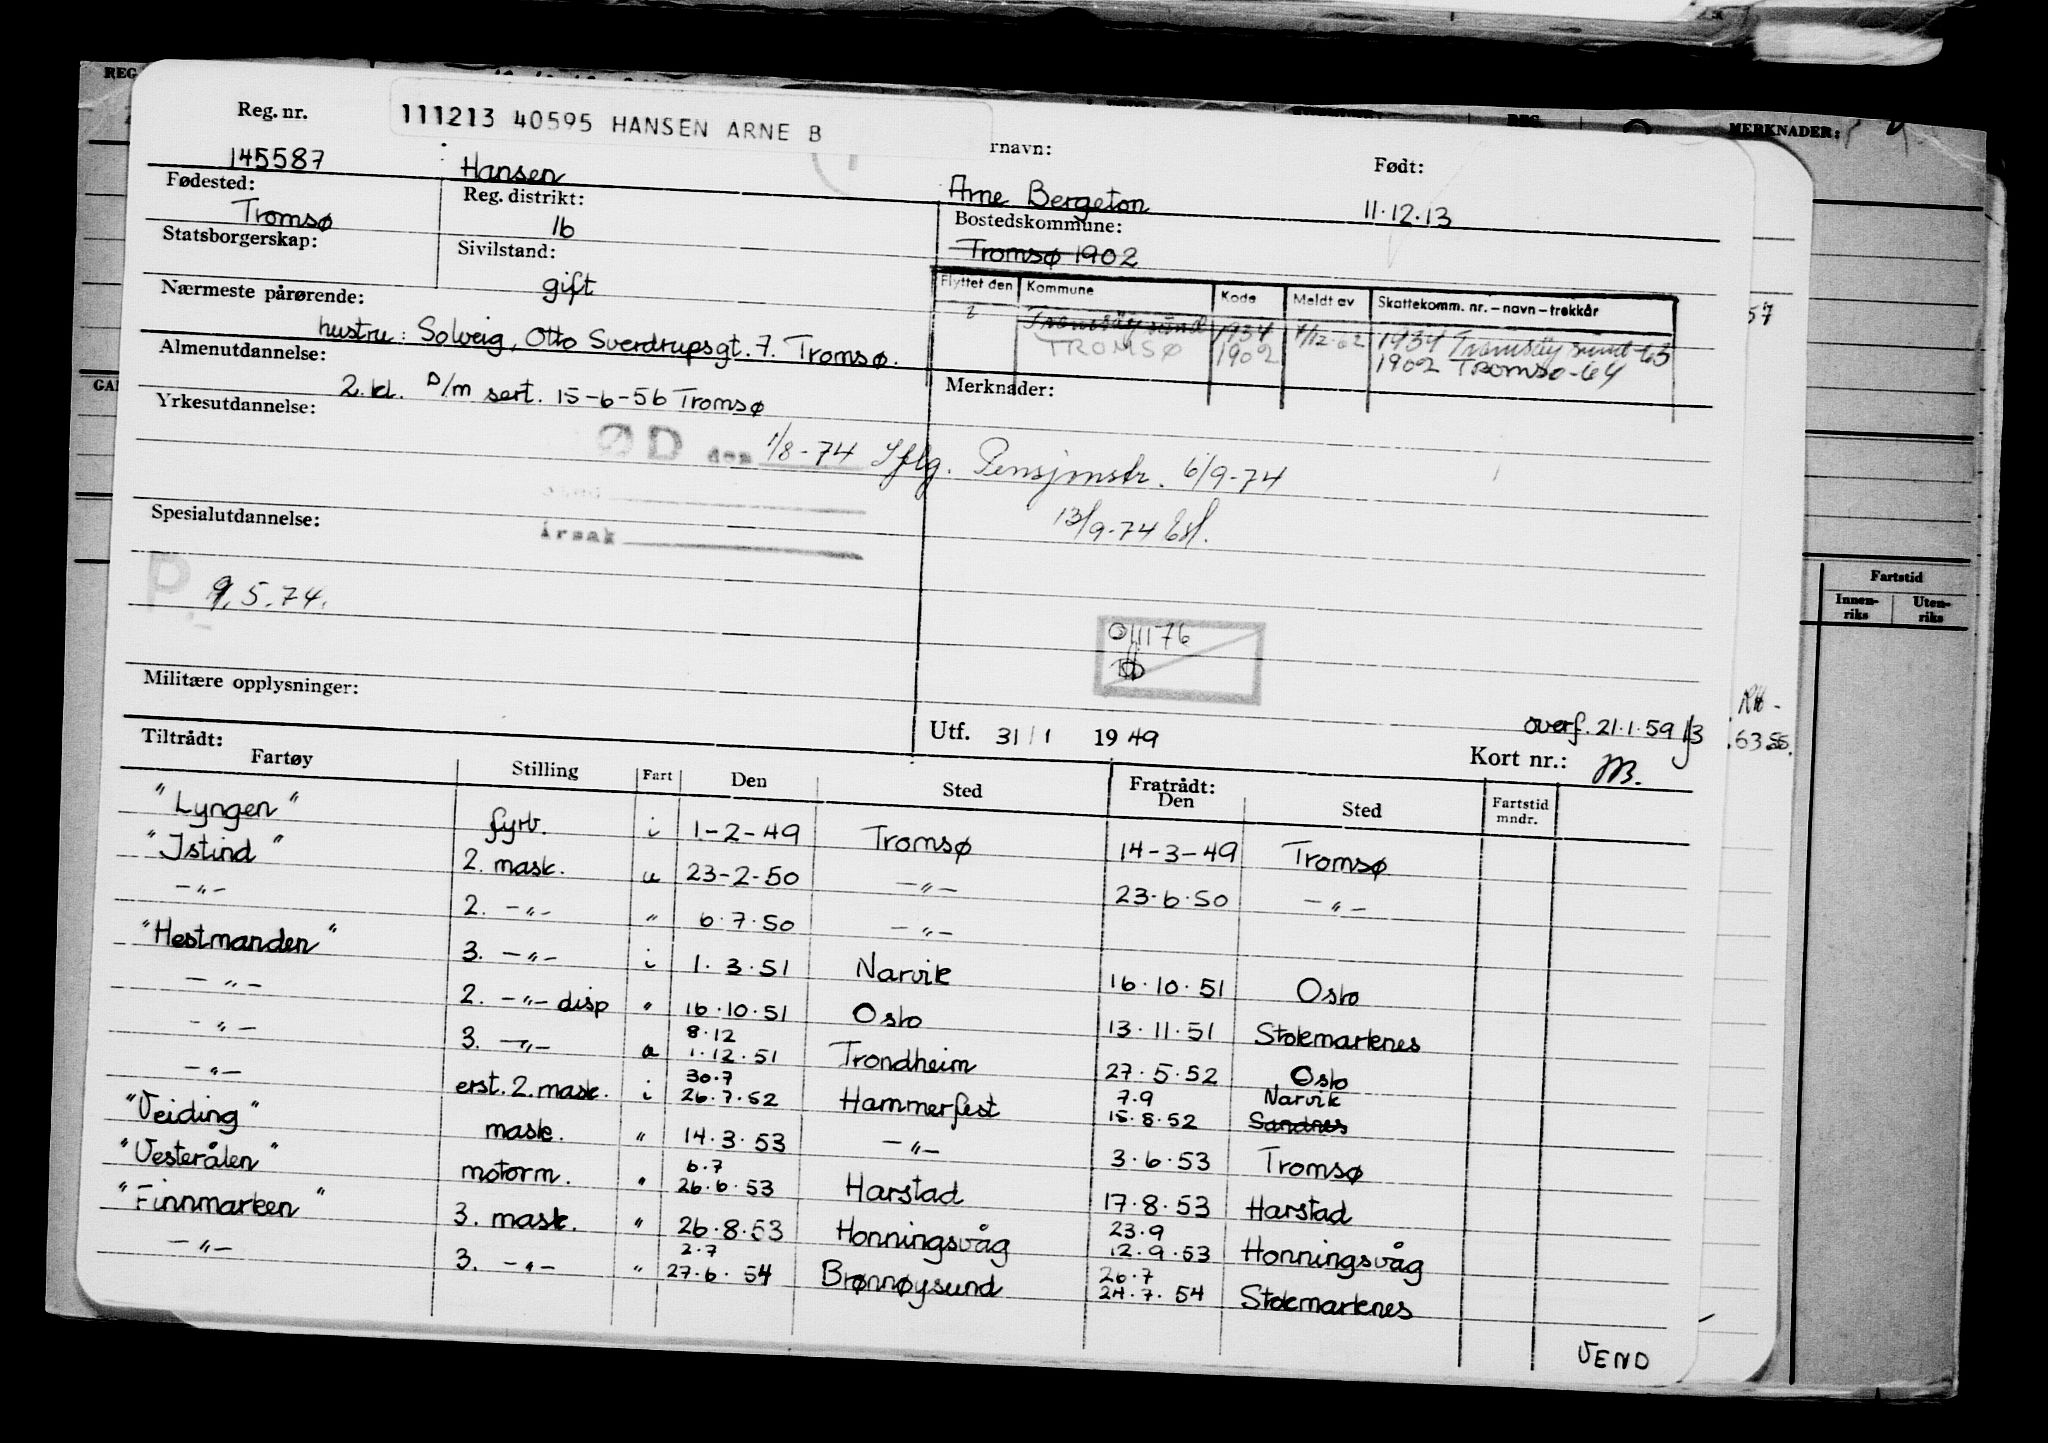 REG
111213 40595 HANSEN ARNE B
Reg. nr.
rnavn:
Født:
REG.
MERKNADER:
145587
Hansen
Arne Bergeton
11.12.13
Fødested:
Reg. distrikt:
Bostedskommune:
Tromsø
16
Tromsø 1902
Statsborgerskap:
Sivilstand:
gift
Flyttet den
Kommune
Kode
Meldt av
Skattekomm. nr. – navn – trekkår
Nærmeste pårørende:
Tromsøysund 1934 1/12-62 1934 Tromsøysund-63
TROMSØ 1902 1902 Tromsø-64
57
hustru: Solveig, Otto Sverdrupsgt. 7. Tromsø.
Almenutdannelse:
Merknader:
2. kl. D/m sert. 15-6-56 Tromsø
Yrkesutdannelse:
ØD den 1/8-74 Iflg. Pensjonstr. 6/9-74
13/9-74
Spesialutdannelse:
årsak
P 9.5.74.
Fartstid
Innen-
riks
Uten-
riks
Militære opplysninger:
Utf. 31/1 1949
overf. 21.1.59
Kort nr.:
Tiltrådt:
Fartøy
Stilling
Fart
Den
Sted
Fratrådt:
Den
Sted
Fartstid
mndr.
"Lyngen" fyrb. i 1-2-49 Tromsø 14-3-49 Tromsø
"Istind" 2. mask. u 23-2-50 -"- 23.6.50 -"-
-"- 2. -"- " 6.7.50 -"-
"Hestmanden" 3. -"- i 1.3.51 Narvik 16.10.51 Oslo
-"- 2. -"- disp " 16.10.51 Oslo 13.11.51 Stokmarknes
8.12
-"- 3. -"- u 1.12.51 Trondheim 27.5.52 Oslo
30.7 7.9 Narvik
-"- erst. 2. mask. i 26.7.52 Hammerfest 15.8.52 Sandnes
"Veiding" mask. " 14.3.53 -"- 3.6.53 Tromsø
6.7
"Vesterålen" motorm. " 26.6.53 Harstad 17.8.53 Harstad
23.9
"Finnmarken" 3. mask. " 26.8.53 Honningsvåg 12.9.53 Honningsvåg
2.7 26.7
-"- 3. -"- " 27.6.54 Brønnøysund 24.7.54 Stokmarknes
VEND